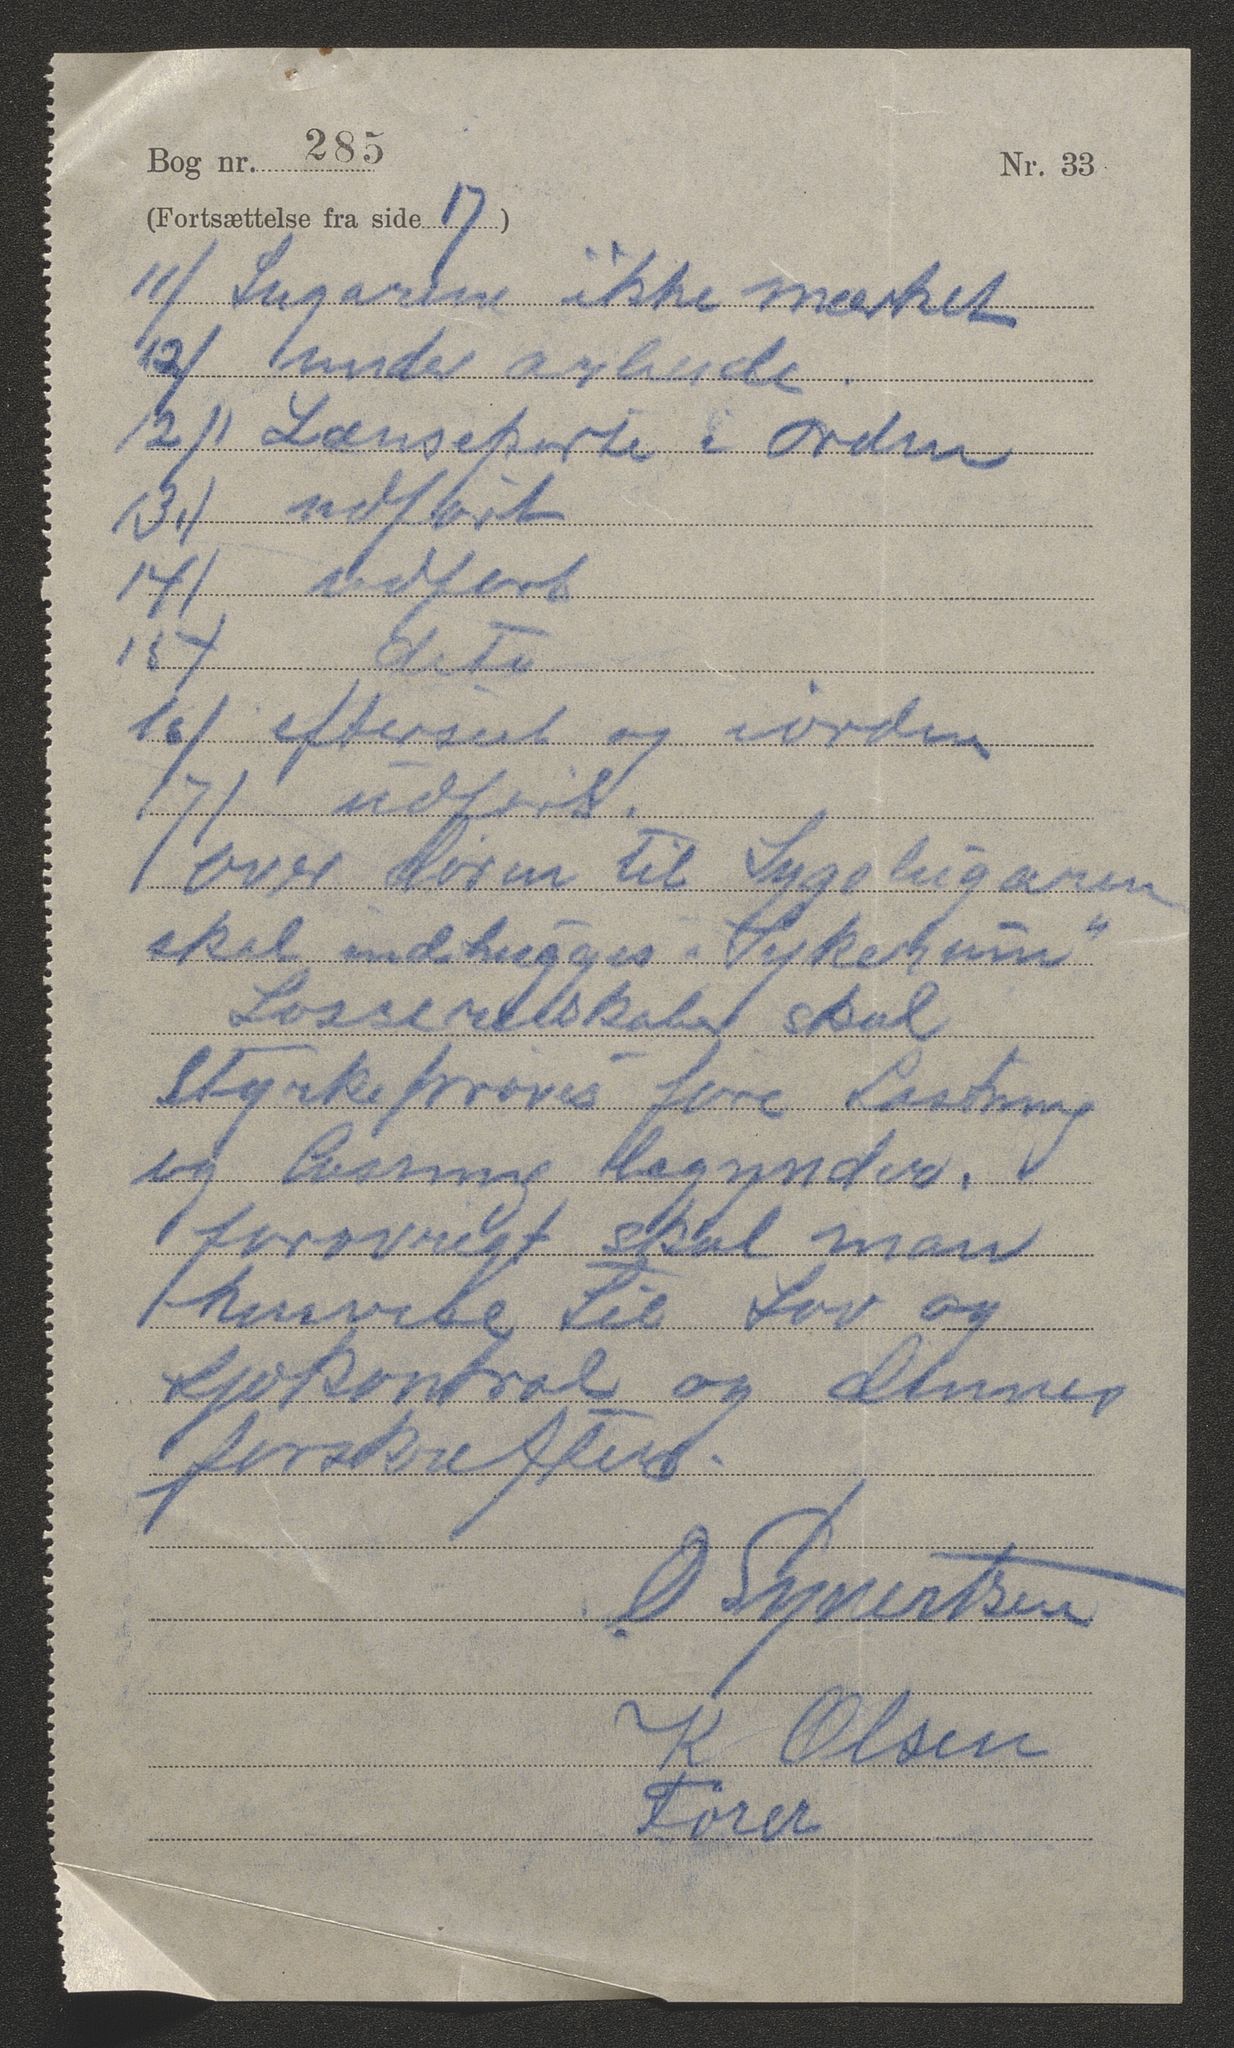 Bog nr. 285 Nr. 33
(Fortsættelse fra side 17)
11/ Lugarene ikke mærket
12/ under arbeide.
12/1 Lænseporte i orden
13/ udført
14/ udført
15/ deto
16/ efterseet og iorden
17/ udført.
over døren til Sygelugaren
skal indhugges "Sykerum"
Losseredskaber skal
Styrkeprøves føre Lastning
og Losning begynder.
forøvrigt skal man
henvise til Lov og
Sjøkontrol og dennes
forskrifter.
O Syvertsen
K Olsen
Fører